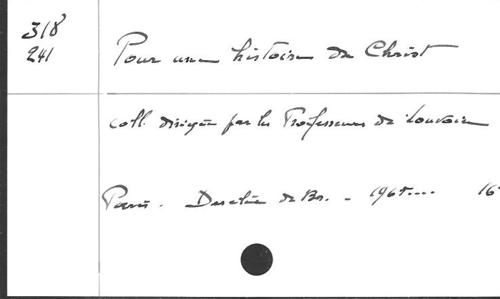 318
241
Pour une histoire du Christ
coll. dirigée par les Professeurs de Louvain
Paris. Desclée de Br. - 196 .... 16